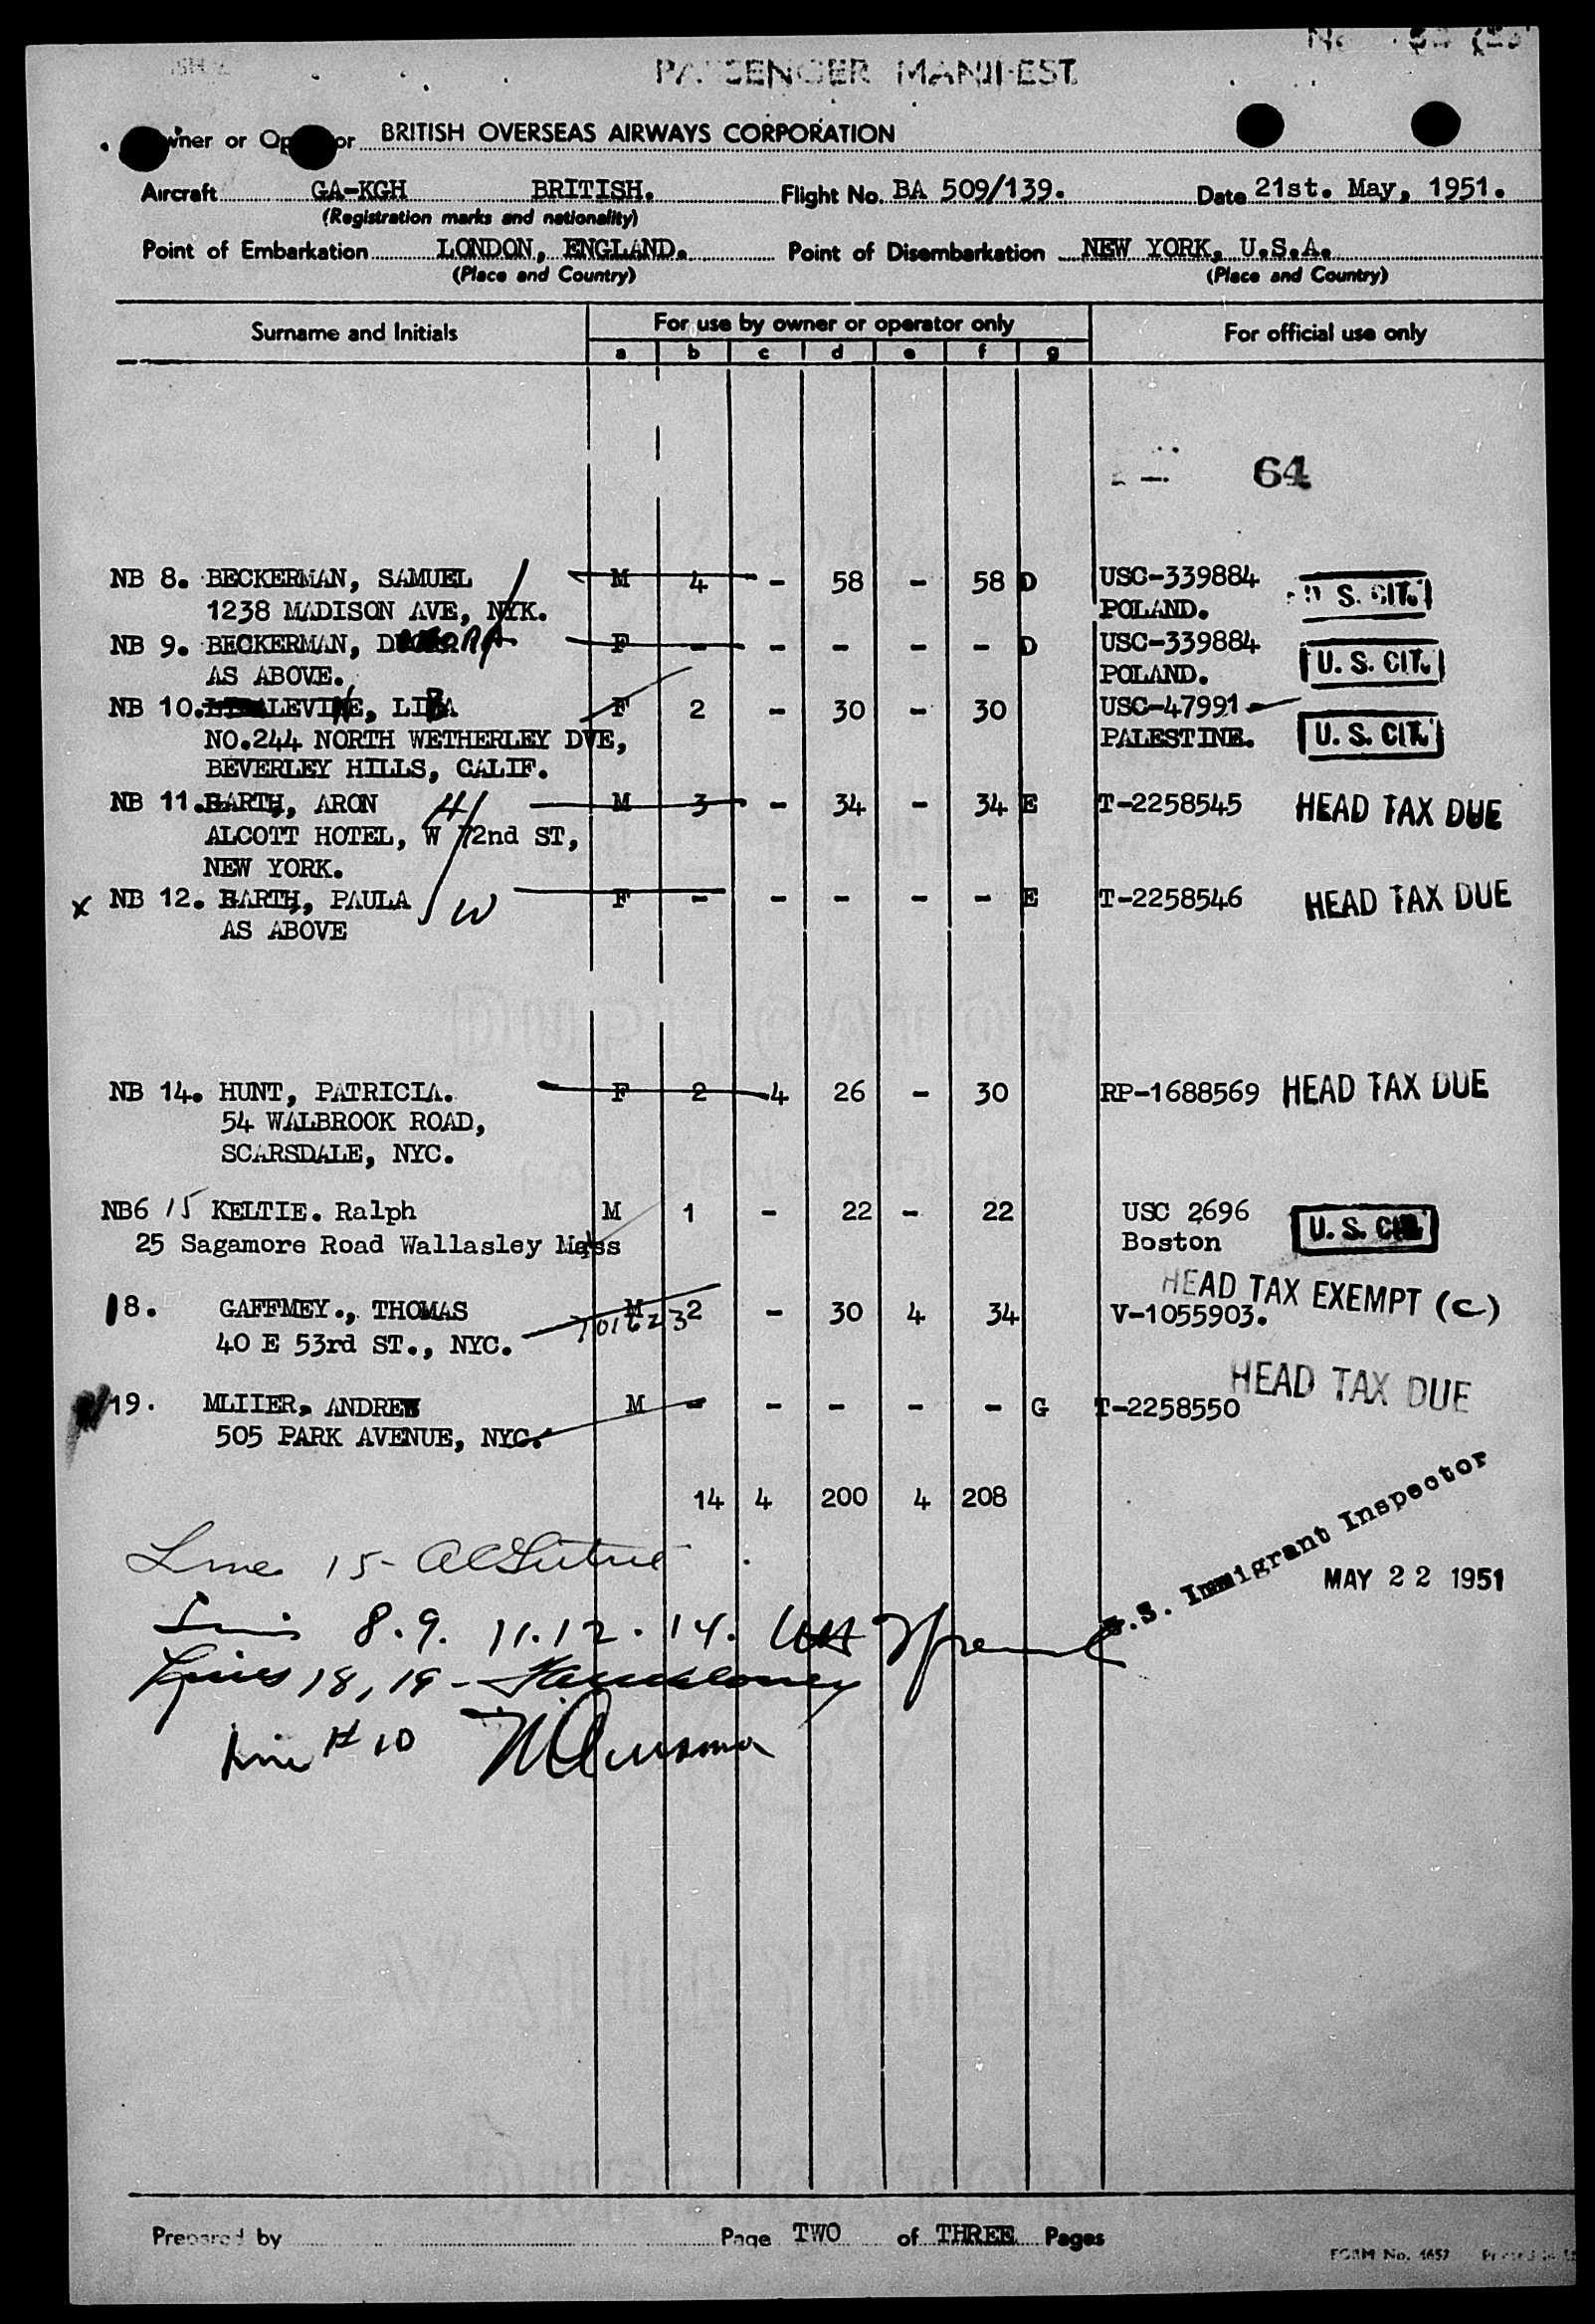 PASSENGER MANIFEST
Owner or Operator BRITISH OVERSEAS AIRWAYS CORPORATION
Aircraft GA-KGH BRITISH. Flight No. BA 509/139. Date 21st. May, 1951.
(Registration marks and nationality)
Point of Embarkation LONDON, ENGLAND. Point of Disembarkation NEW YORK, U.S.A.
(Place and Country) (Place and Country)
Surname and Initials For use by owner or operator only For official use only
a b c d e f g
64
NB 8. BECKERMAN, SAMUEL M 4 - 58 - 58 D USC-339884 U. S. CIT.
1238 MADISON AVE, NYK. POLAND.
NB 9. BECKERMAN, F - - - - - D USC-339884 U. S. CIT.
AS ABOVE. POLAND.
NB 10. LEVINE, LIBA F 2 - 30 - 30 USC-47991
NO.244 NORTH WETHERLEY DVE, PALESTINE. U. S. CIT.
BEVERLEY HILLS, CALIF.
NB 11. BARTH, ARON H M 3 - 34 - 34 E T-2258545 HEAD TAX DUE
ALCOTT HOTEL, W 72nd ST,
NEW YORK.
x NB 12. BARTH, PAULA W F - - - - - E T-2258546 HEAD TAX DUE
AS ABOVE
NB 14. HUNT, PATRICIA. F 2 4 26 - 30 RP-1688569 HEAD TAX DUE
54 WALBROOK ROAD,
SCARSDALE, NYC.
NB6 15 KELTIE. Ralph M 1 - 22 - 22 USC 2696 U. S. CIT.
25 Sagamore Road Wallasley Mass Boston
HEAD TAX EXEMPT (C)
18. GAFFMEY., THOMAS M 2 - 30 4 34 V-1055903.
40 E 53rd ST., NYC. 701623
HEAD TAX DUE
19. MLIIER, ANDREW M - - - - - G T-2258550
505 PARK AVENUE, NYC.
14 4 200 4 208
U.S. Immigrant Inspector
MAY 22 1951
Line 15-
8.9. 11.12. 14.
Lines 18, 19 -
Line # 10
Prepared by Page TWO of THREE Pages
FORM No. 1657